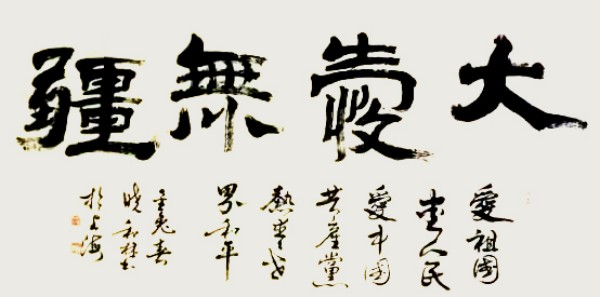 大愛無疆
愛祖國
愛人民
愛中國
共產黨
熱愛世
界和平
玉兔春
曉和
於上海